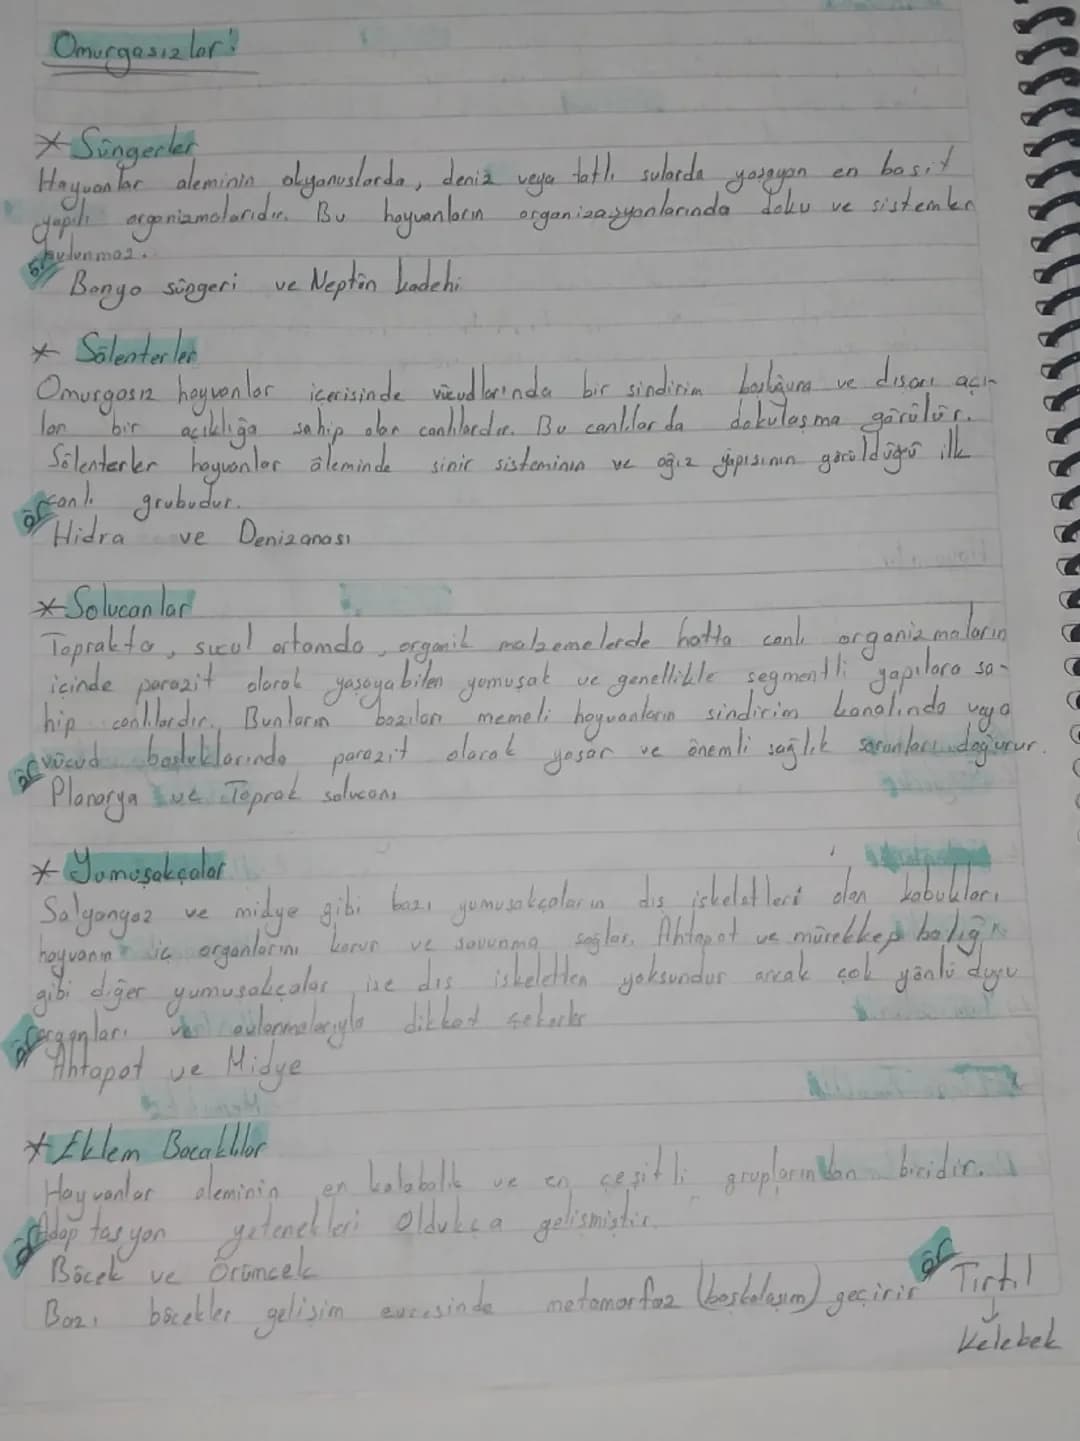 Omurgasızlar:
* Süngerler
Hayvanlar aleminin okyanuslarda, deniz veya tatlı sularda yaşayan en basit
yapılı organizmalarıdır. Bu hayvanların organizasyonlarında doku ve sistemler
bulunmaz.
ör Banyo süngeri ve Neptün kadehi
* Sölenterler
Omurgasız hayvanlar içerisinde vücudlarında bir sindirim boşluğuna ve dışarı açı-
lan bir açıklığa sahip olan canlılardır. Bu canlılarda dokulaşma görülür.
Sölenterler hayvanlar âleminde sinir sisteminin ve ağız yapısının görüldüğü ilk
canlı grubudur.
ör Hidra ve Denizanası
* Solucanlar
Toprakta, sucul ortamda, organik malzemelerde hatta canlı organizmaların
içinde parazit olarak yaşayabilen yumuşak ve genellikle segmentli yapılara sa-
hip canlılardır. Bunların bazıları memeli hayvanların sindirim kanalında veya
vücud boşluklarında parazit olarak yaşar ve önemli sağlık sorunları doğurur.
ör Planarya ve Toprak solucanı
* Yumuşakçalar
Salyangoz ve midye gibi bazı yumuşakçaların dış iskeletleri olan kabukları,
hayvanın iç organlarını korur ve savunma sağlar. Ahtapot ve mürekkep balığı
gibi diğer yumuşakçalar ise dış iskeletten yoksundur ancak çok yönlü duyu
organları ve avlanmalarıyla dikkat çekerler
ör Ahtapot ve Midye
* Eklem Bacaklılar
Hayvanlar aleminin en kalabalık ve en çeşitli gruplarından biridir.
Adaptasyon yetenekleri Oldukça gelişmiştir.
ör Böcek ve Örümcek
Bazı böcekler gelişim evresinde metamorfoz (başkalaşım) geçirir ör Tırtıl
↓
Kelebek